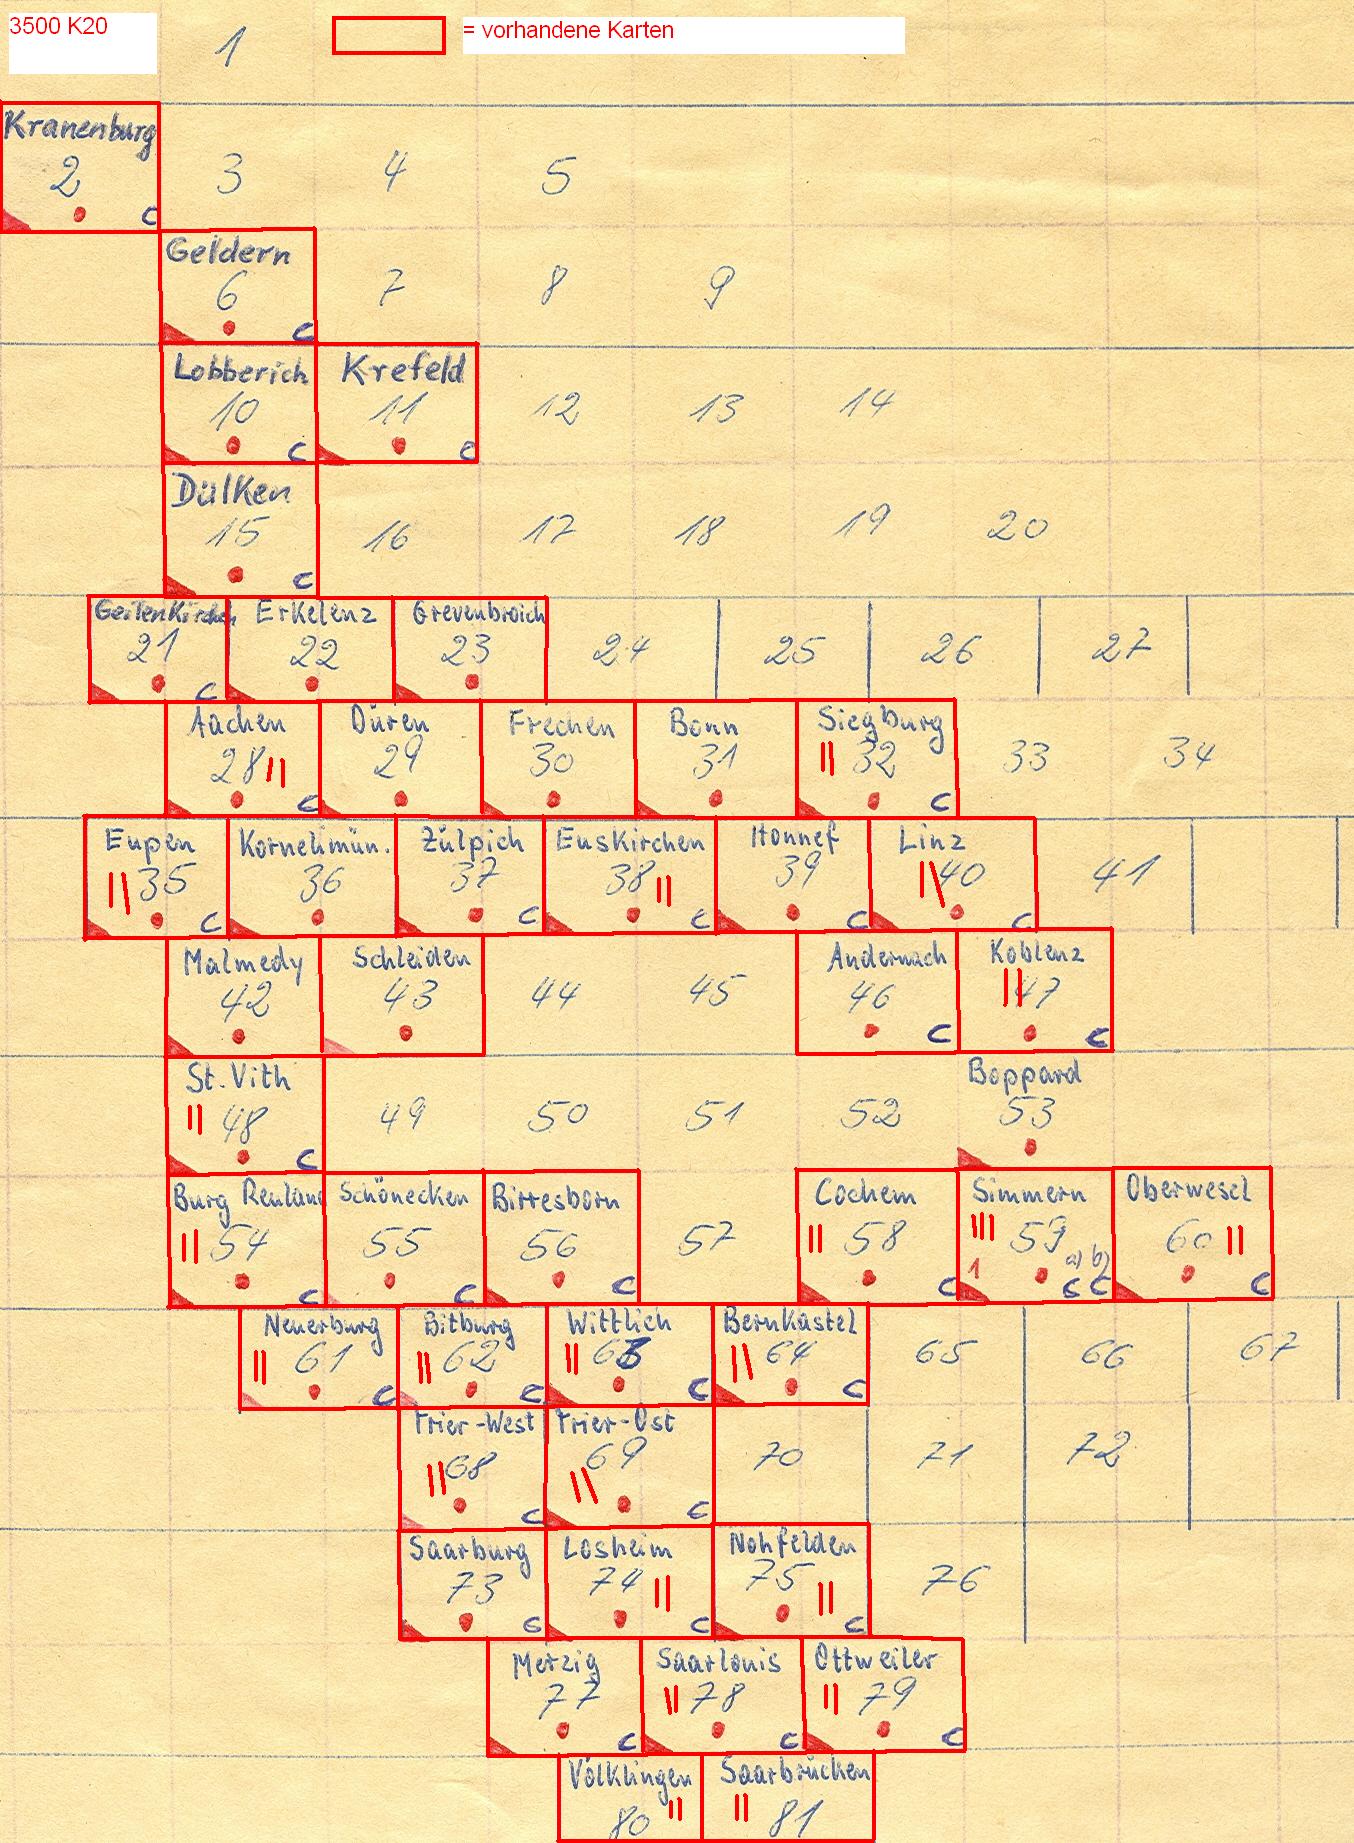 3500 K20
= vorhandene Karten
1
Kranenburg
2 3 4 5
C
Geldern
6 7 8 9
C
Lobberich Krefeld
10 11 12 13 14
C C
Dülken
15 16 17 18 19 20
C
Geilenkirchen Erkelenz Grevenbroich
21 22 23 24 25 26 27
C
Aachen Düren Frechen Bonn Siegburg
28 || 29 30 31 || 32 33 34
C C
Eupen Kornelimün. Zülpich Euskirchen Honnef Linz
|| 35 36 37 38 || 39 || 40 41
C C C C C
Malmedy Schleiden Andernach Koblenz
42 43 44 45 46 || 47
C C
St. Vith Boppard
|| 48 49 50 51 52 53
C
Burg Reuland Schönecken Birresborn Cochem Simmern Oberwesel
|| 54 55 56 57 || 58 ||| 59 60 ||
1 a) b)
C C C C C C C
Neuerburg Bitburg Wittlich Bernkastel
|| 61 || 62 || 63 || 64 65 66 67
C C C C
Trier-West Trier-Ost
|| 68 || 69 70 71 72
C C
Saarburg Losheim Nohfelden
73 74 || 75 || 76
C C C
Merzig Saarlouis Ottweiler
77 || 78 || 79
C C C
Völklingen Saarbrücken
80 || || 81